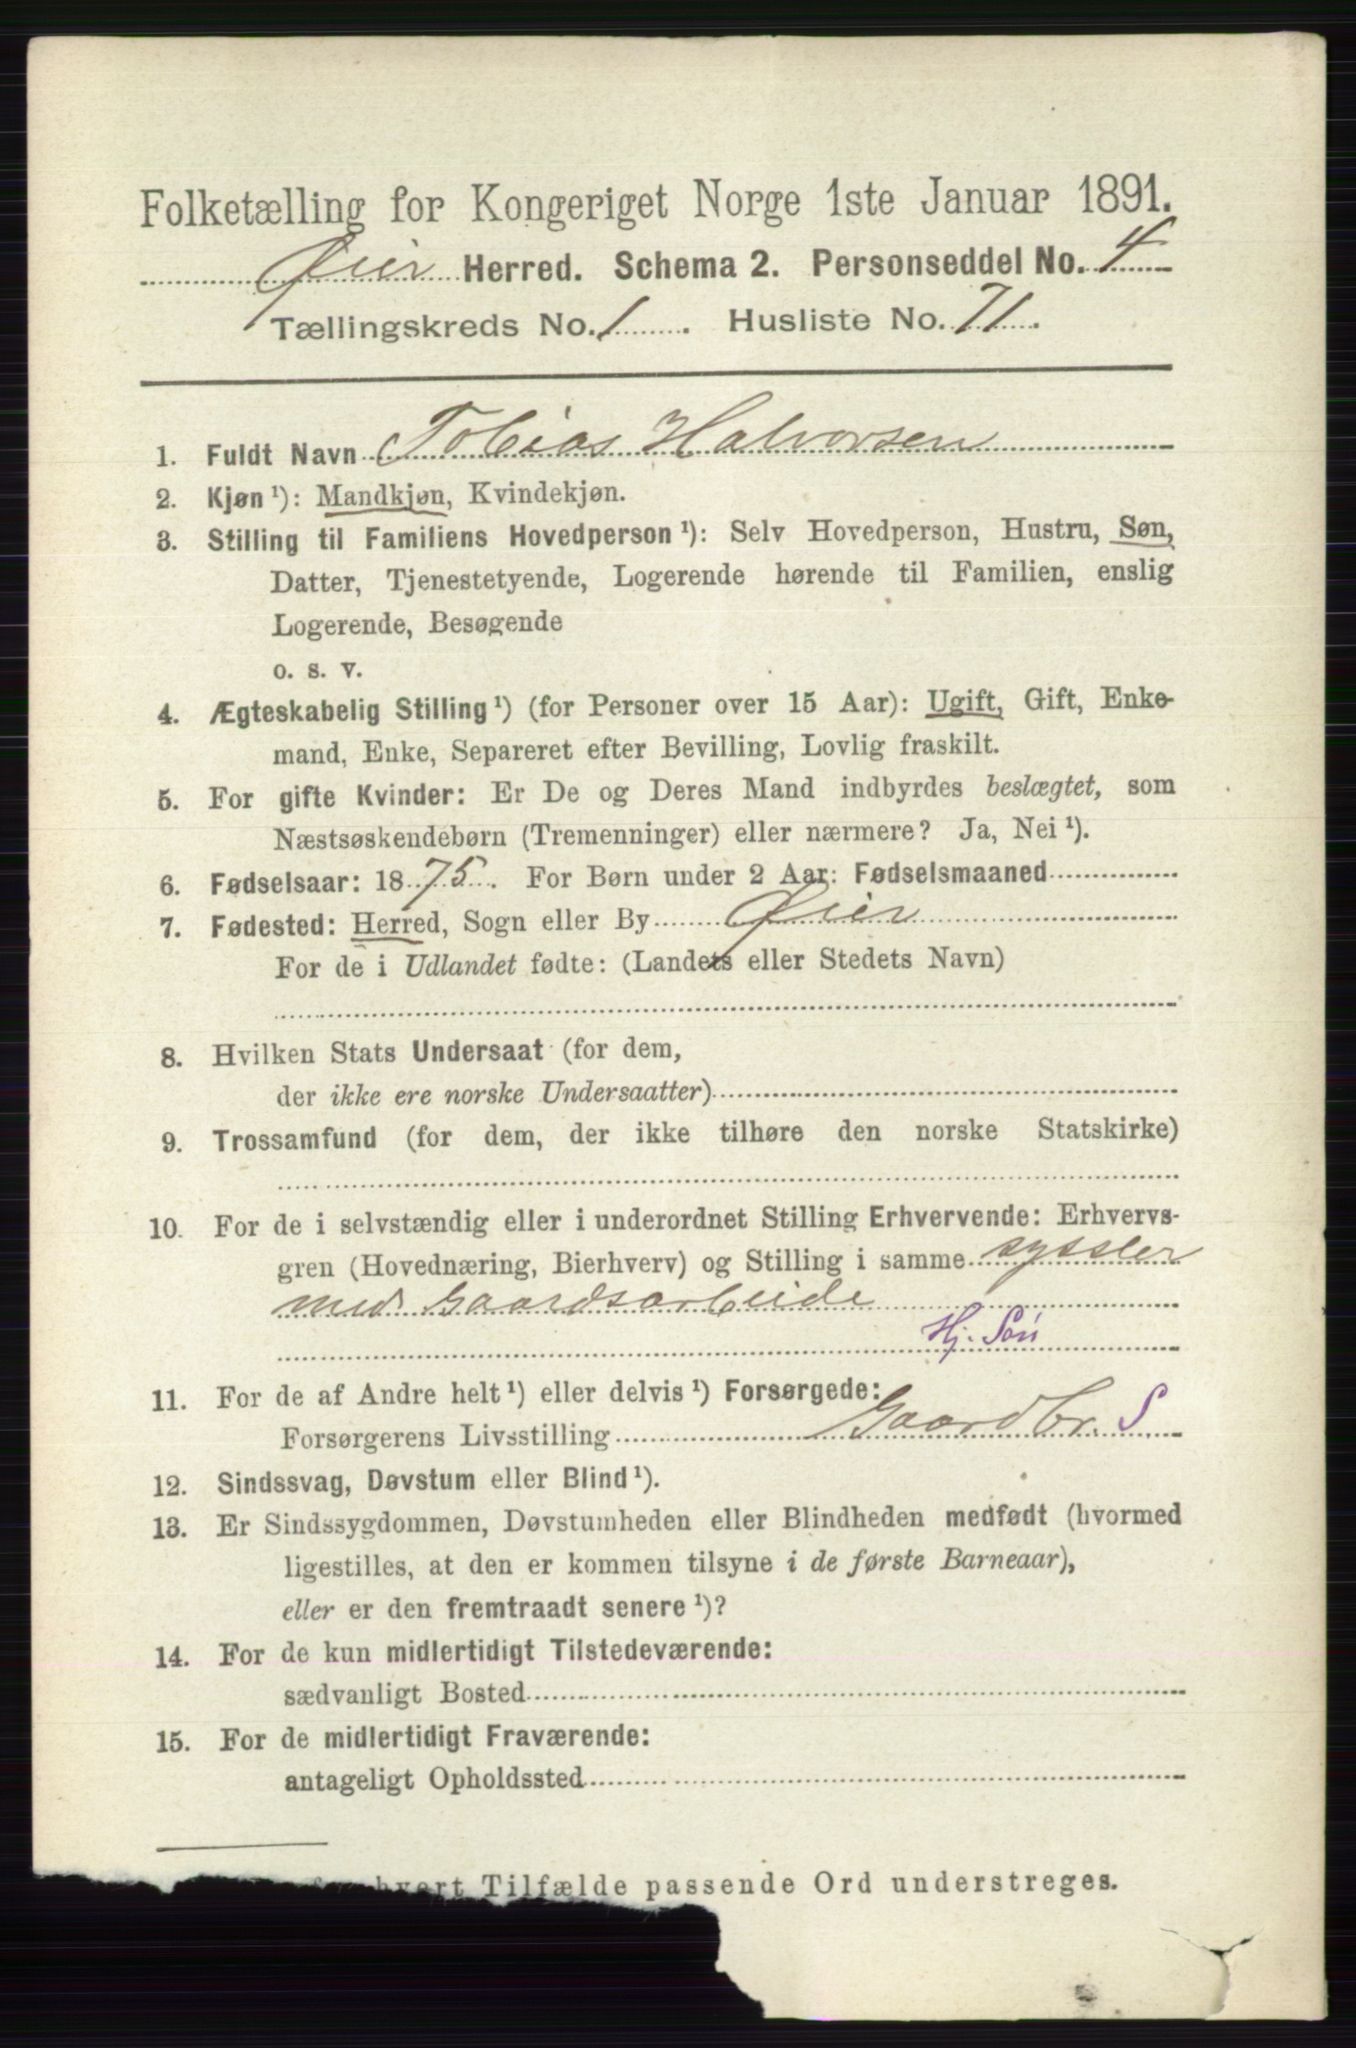 Folketælling for Kongeriget Norge 1ste Januar 1891.
Øier Herred. Schema 2. Personseddel No. 4
Tællingskreds No. 1. Husliste No. 71.
1. Fuldt Navn Tobias Halvorsen
2. Kjøn ¹): Mandkjøn, Kvindekjøn.
3. Stilling til Familiens Hovedperson ¹): Selv Hovedperson, Hustru, Søn,
Datter, Tjenestetyende, Logerende hørende til Familien, enslig
Logerende, Besøgende
o. s. v.
4. Ægteskabelig Stilling ¹) (for Personer over 15 Aar): Ugift, Gift, Enke-
mand, Enke, Separeret efter Bevilling, Lovlig fraskilt.
5. For gifte Kvinder: Er De og Deres Mand indbyrdes beslægtet, som
Næstsøskendebørn (Tremenninger) eller nærmere? Ja, Nei ¹).
6. Fødselsaar: 1875. For Børn under 2 Aar: Fødselsmaaned
7. Fødested: Herred, Sogn eller By Øier
For de i Udlandet fødte: (Landets eller Stedets Navn)
8. Hvilken Stats Undersaat (for dem,
der ikke ere norske Undersaatter)
9. Trossamfund (for dem, der ikke tilhøre den norske Statskirke)
10. For de i selvstændig eller i underordnet Stilling Erhvervende: Erhvervs-
gren (Hovednæring, Bierhverv) og Stilling i samme syssler
med Gaardsarbeide
Hj. Søn
11. For de af Andre helt ¹) eller delvis ¹) Forsørgede:
Forsørgerens Livsstilling Gaardbr. S
12. Sindssvag, Døvstum eller Blind ¹).
13. Er Sindssygdommen, Døvstumheden eller Blindheden medfødt (hvormed
ligestilles, at den er kommen tilsyne i de første Barneaar),
eller er den fremtraadt senere ¹)?
14. For de kun midlertidigt Tilstedeværende:
sædvanligt Bosted
15. For de midlertidigt Fraværende:
antageligt Opholdssted
hvert Tilfælde passende Ord understreges.